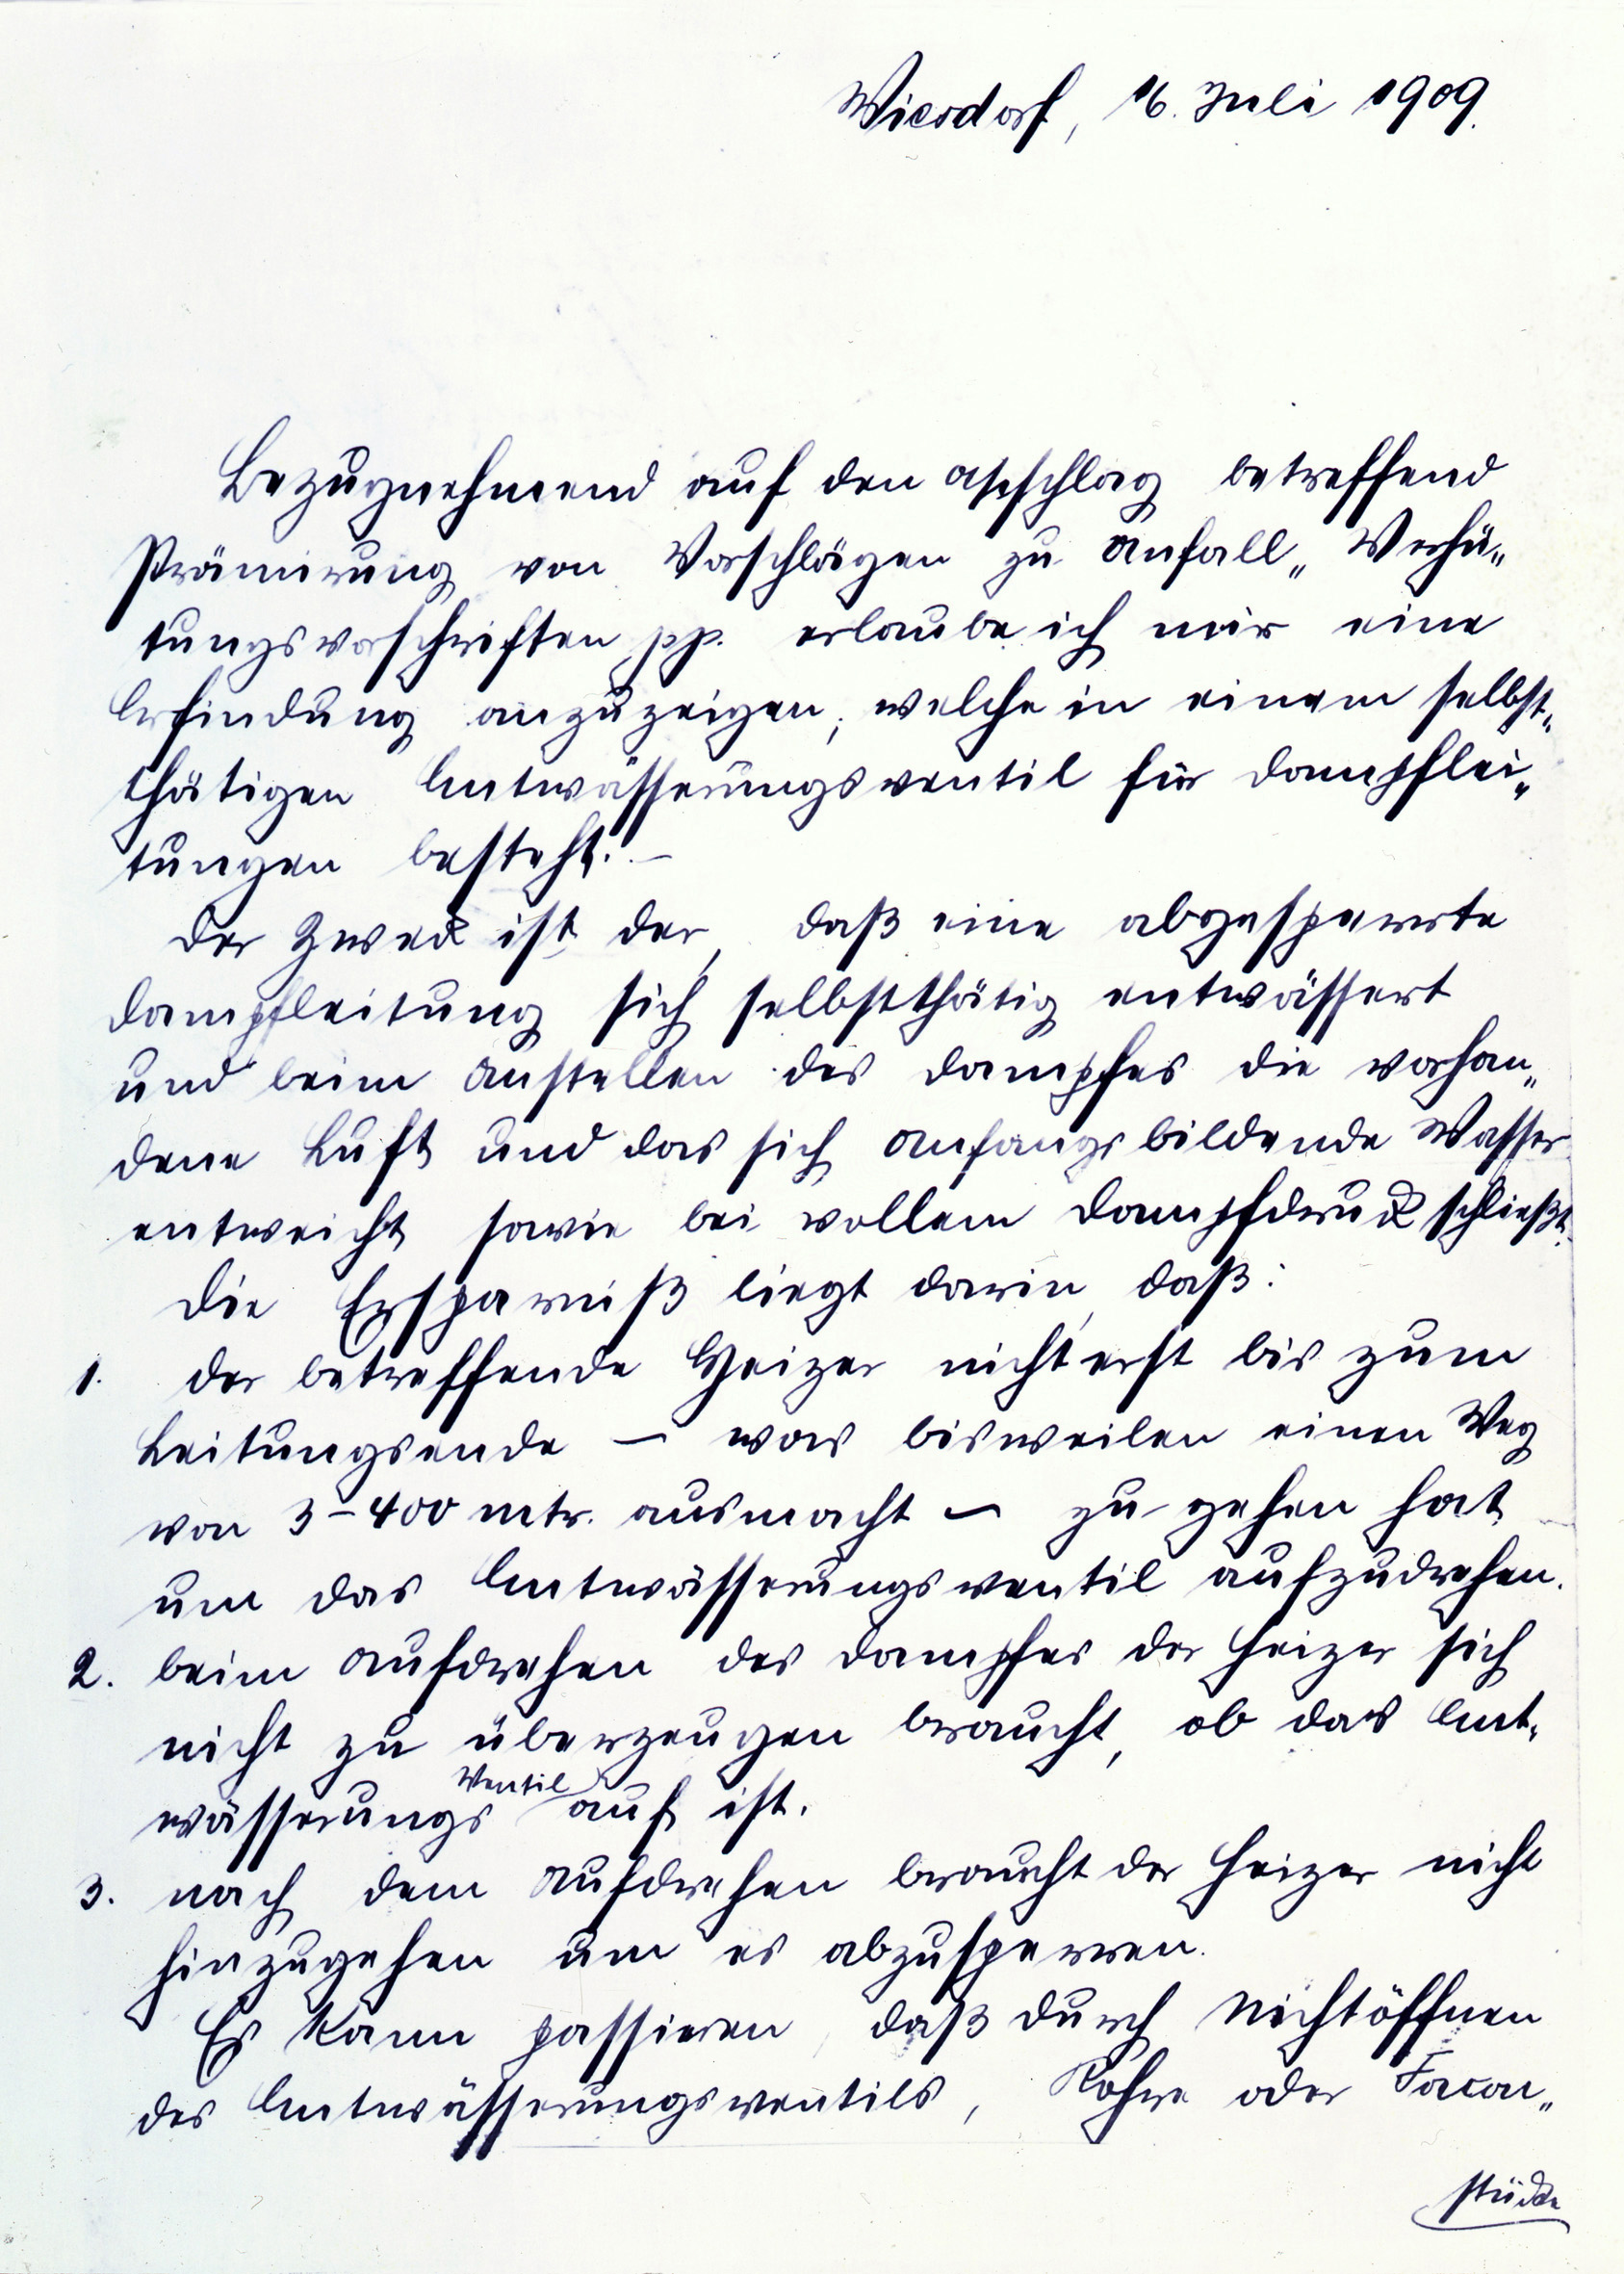 Wiesdorf, 16. Juli 1909.
Bezugnehmend auf den Anschlag betreffend
Prämirung von Vorschlägen zu Unfall„ Verhü„
tungsvorschriften pp. erlaube ich mir eine
Erfindung anzuzeigen, welche in einem selbst„
thätigen Entwässerungsventil für Dampflei„
tungen besteht. –
Der Zweck ist der, daß eine abgesperrte
Dampfleitung sich selbstthätig entwässert
und beim Anstellen des Dampfes die vorhan„
dene Luft und das sich anfangs bildende Wasser
entweicht sowie bei vollem Dampfdruck schließt.
Die Ersparniß liegt darin, daß:
1. der betreffende Heizer nicht erst bis zum
Leitungsende – was bisweilen einen Weg
von 3–400 mtr. ausmacht – zu gehen hat
um das Entwässerungsventil aufzudrehen.
2. beim Aufdrehen des Dampfes der Heizer sich
nicht zu überzeugen braucht, ob das Ent„
wässerungs Ventil auf ist.
3. nach dem Aufdrehen braucht der Heizer nicht
hinzugehen um es abzusperren.
Es kann passieren, daß durch Nichtöffnen
des Entwässerungsventils, Rohre oder Facon„
stücke